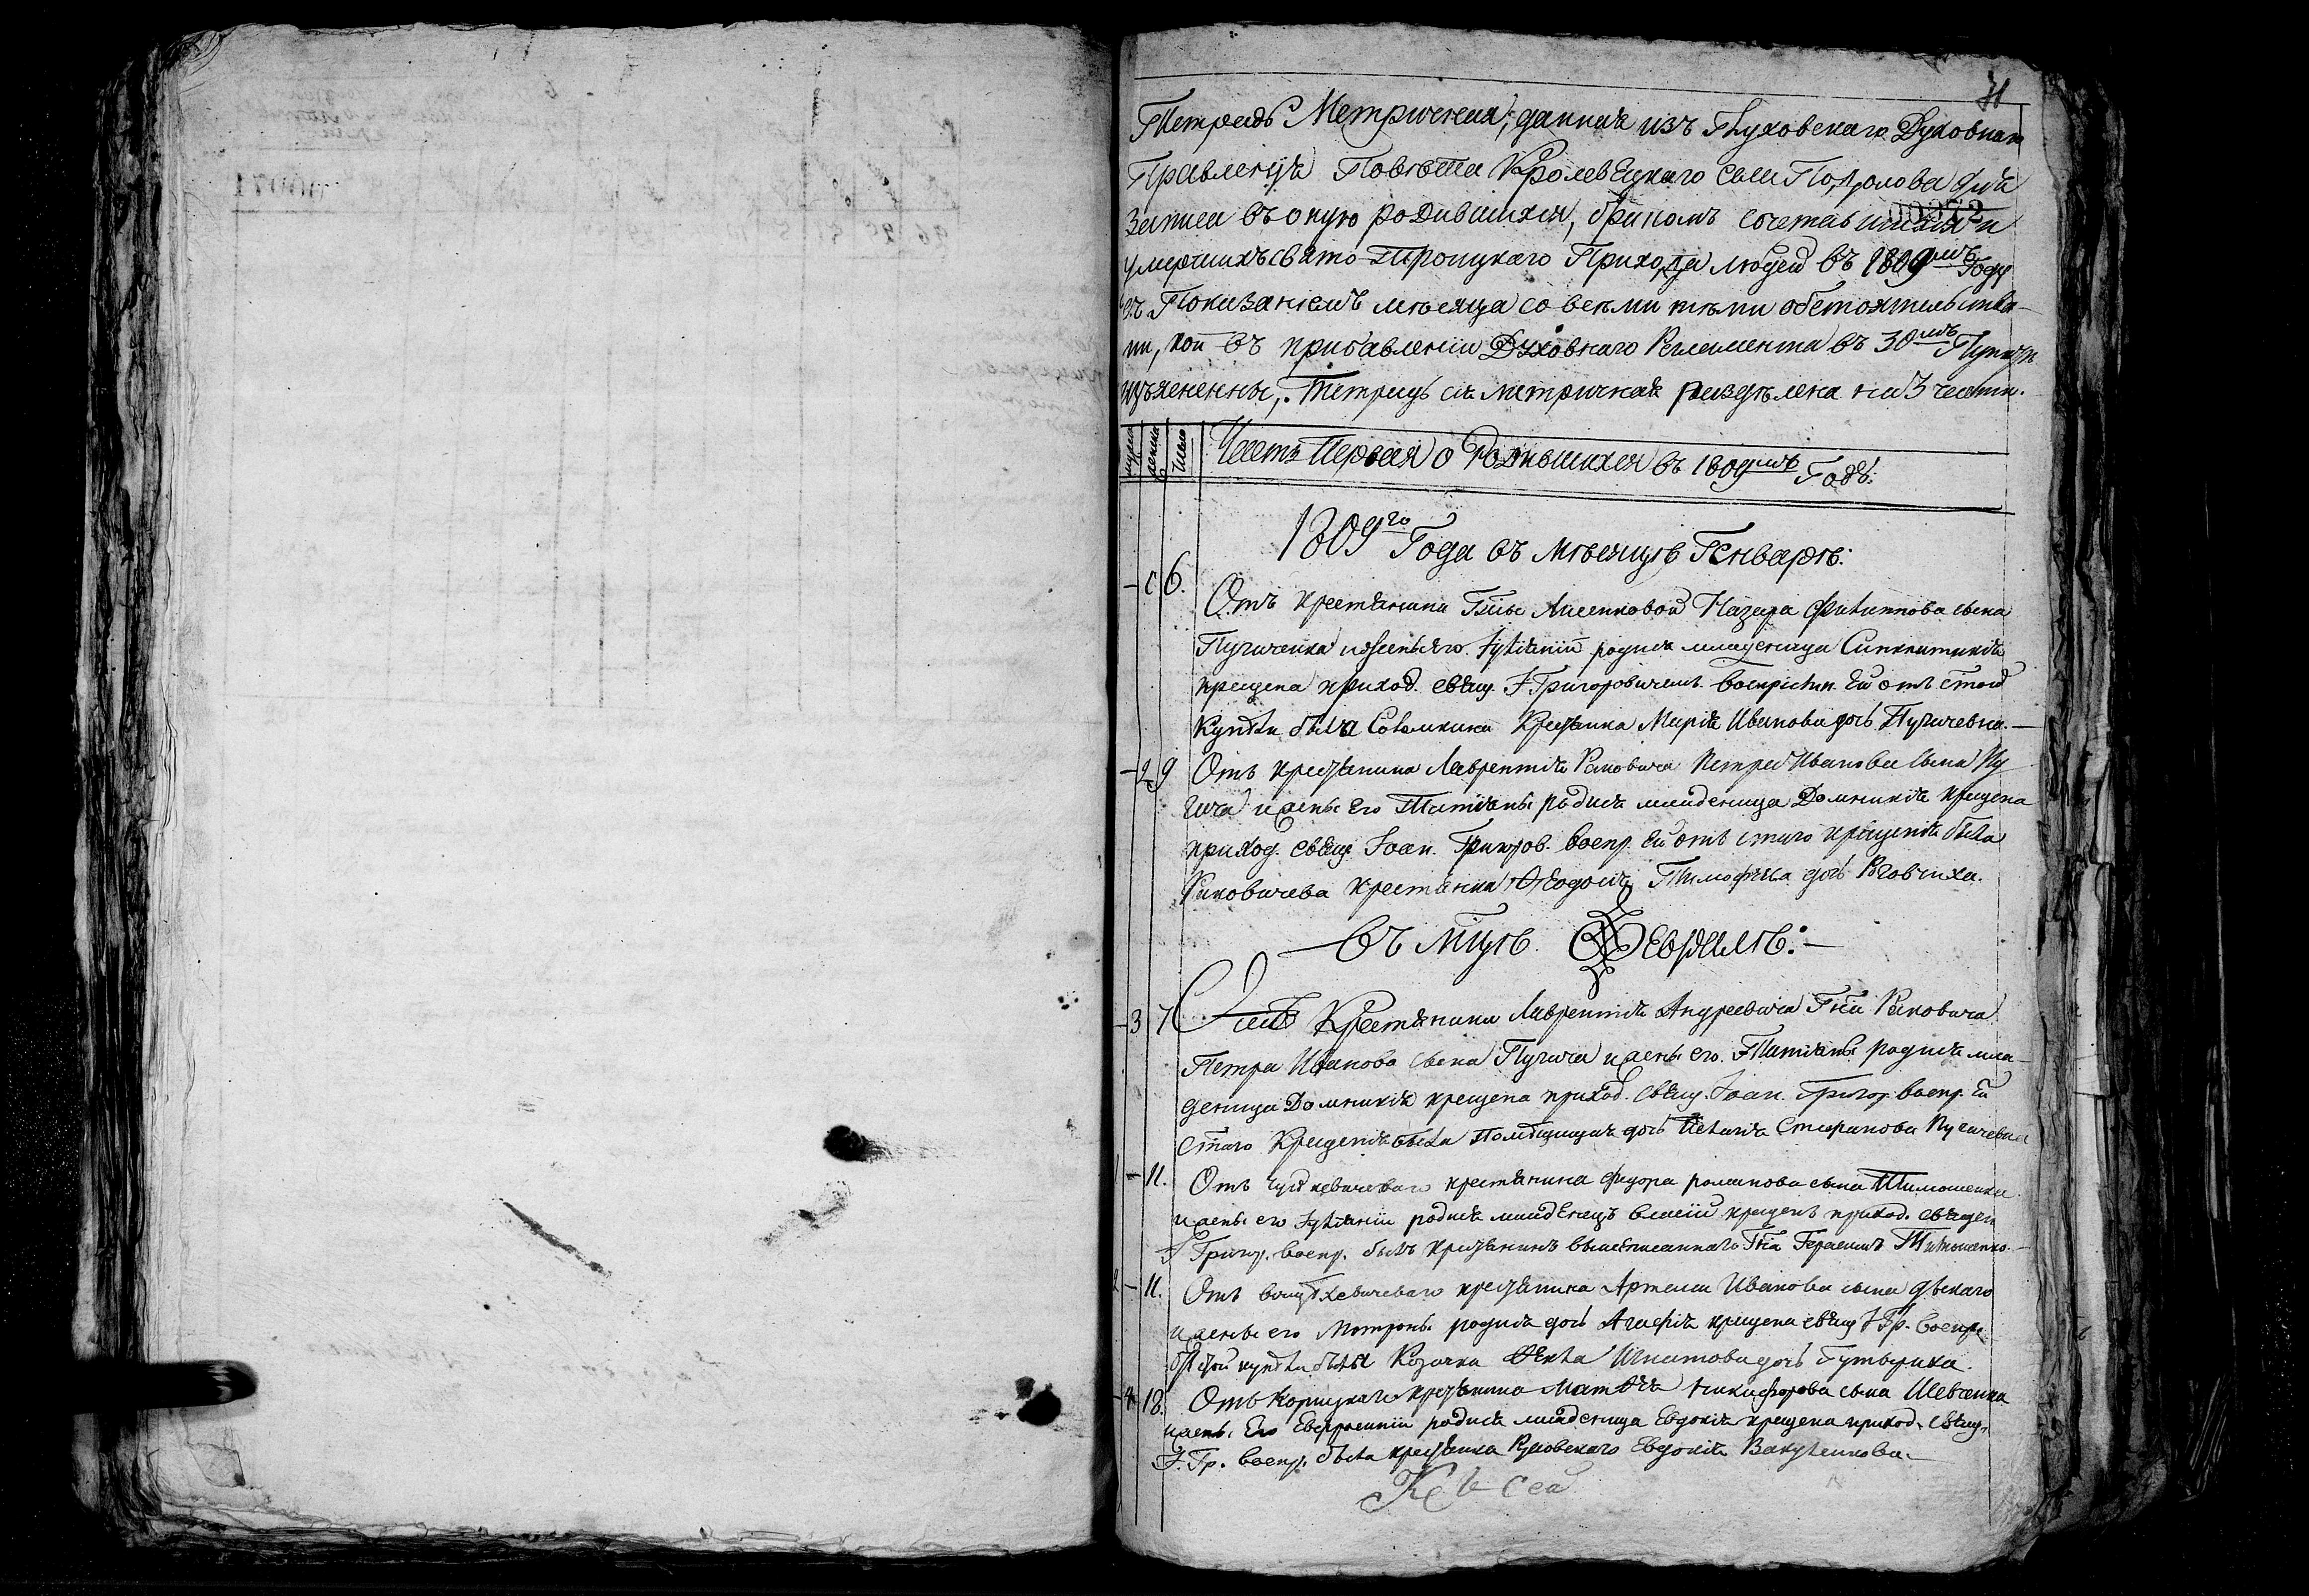 71
Тетрадь Метрическая, данная изъ Глуховскаго Духовнаго
Правленія Повѣта Кролевецкаго села Подолова для
записи въ оную родившихся, бракомъ сочетавшихся и
00072
умершихъ свято-Троицкаго Прихода людей въ 1809мъ Году
съ Показаніемъ мѣсяца со всѣми тѣми обстоятельства-
ми, кои въ прибавленіи Духовнаго Регламента въ 30мъ Пунктѣ
изъяснены, Тетрадь сія метричная раздѣлена на 3 части.
мужеска
женска
Число
Часть Первая о Родившихся въ 1809мъ Годѣ:
1809го Года въ мѣсяцѣ Генварѣ:
- 1 6. Отъ крестянина Гпжи Лисенковой Назара Филиппова сына
Пугаченка и жены его Іуліянїи родися младеница Синклитикія
крещена приход. свящ. І Григоровичемъ. воспріемн. ей отъ стой
купѣли была крестянка Марія Иванова дочь Пугичевна. -
- 2 9 Отъ крестянина Лаврентія Раковича Петра Иванова сына Пу
гича и жены его Татіяны родися младеница Домникія крещена
приход. свящ. Іоан. Григоров. воспр. ей отъ стаго крещенія была
Раковичева крестянка Ѳеодосія Тимофѣева дочь
- въ мцѣ Февралѣ: -
- 3 7 Отъ Крестянина Лаврентія Андреевича Гна Раковича
Петра Иванова сына Пугича и жены его Татіяны родися мла-
деница Домникія крещена приход. свящ. Іоан. Григор. воспр. ей
стаго Крещенія была дочь Стефанова
1 - 11. Отъ крестянина Фидора романова сына Тимошенка
и жены его Іуліяніи родися младенецъ власїй крещенъ приход. священ
І Григор. воспр. былъ крестянинъ вышеписаннаго Гна Герасимъ
2 - 11. Отъ крестянина Артема Иванова сына
и жены его Мотроны родися дочь Агафія крещена свящ І Гр. воспр.
стой купѣли была Козачка Ѳекла Игнатова дочь
- 4 18. Отъ Корицкаго крестянина Матѳѣя никифорова сына Шевченка
и жены его Евфросинїи родися младеница Евдокія крещена приход. свящ.
І. Гр. воспр. была крестянка Евдокія